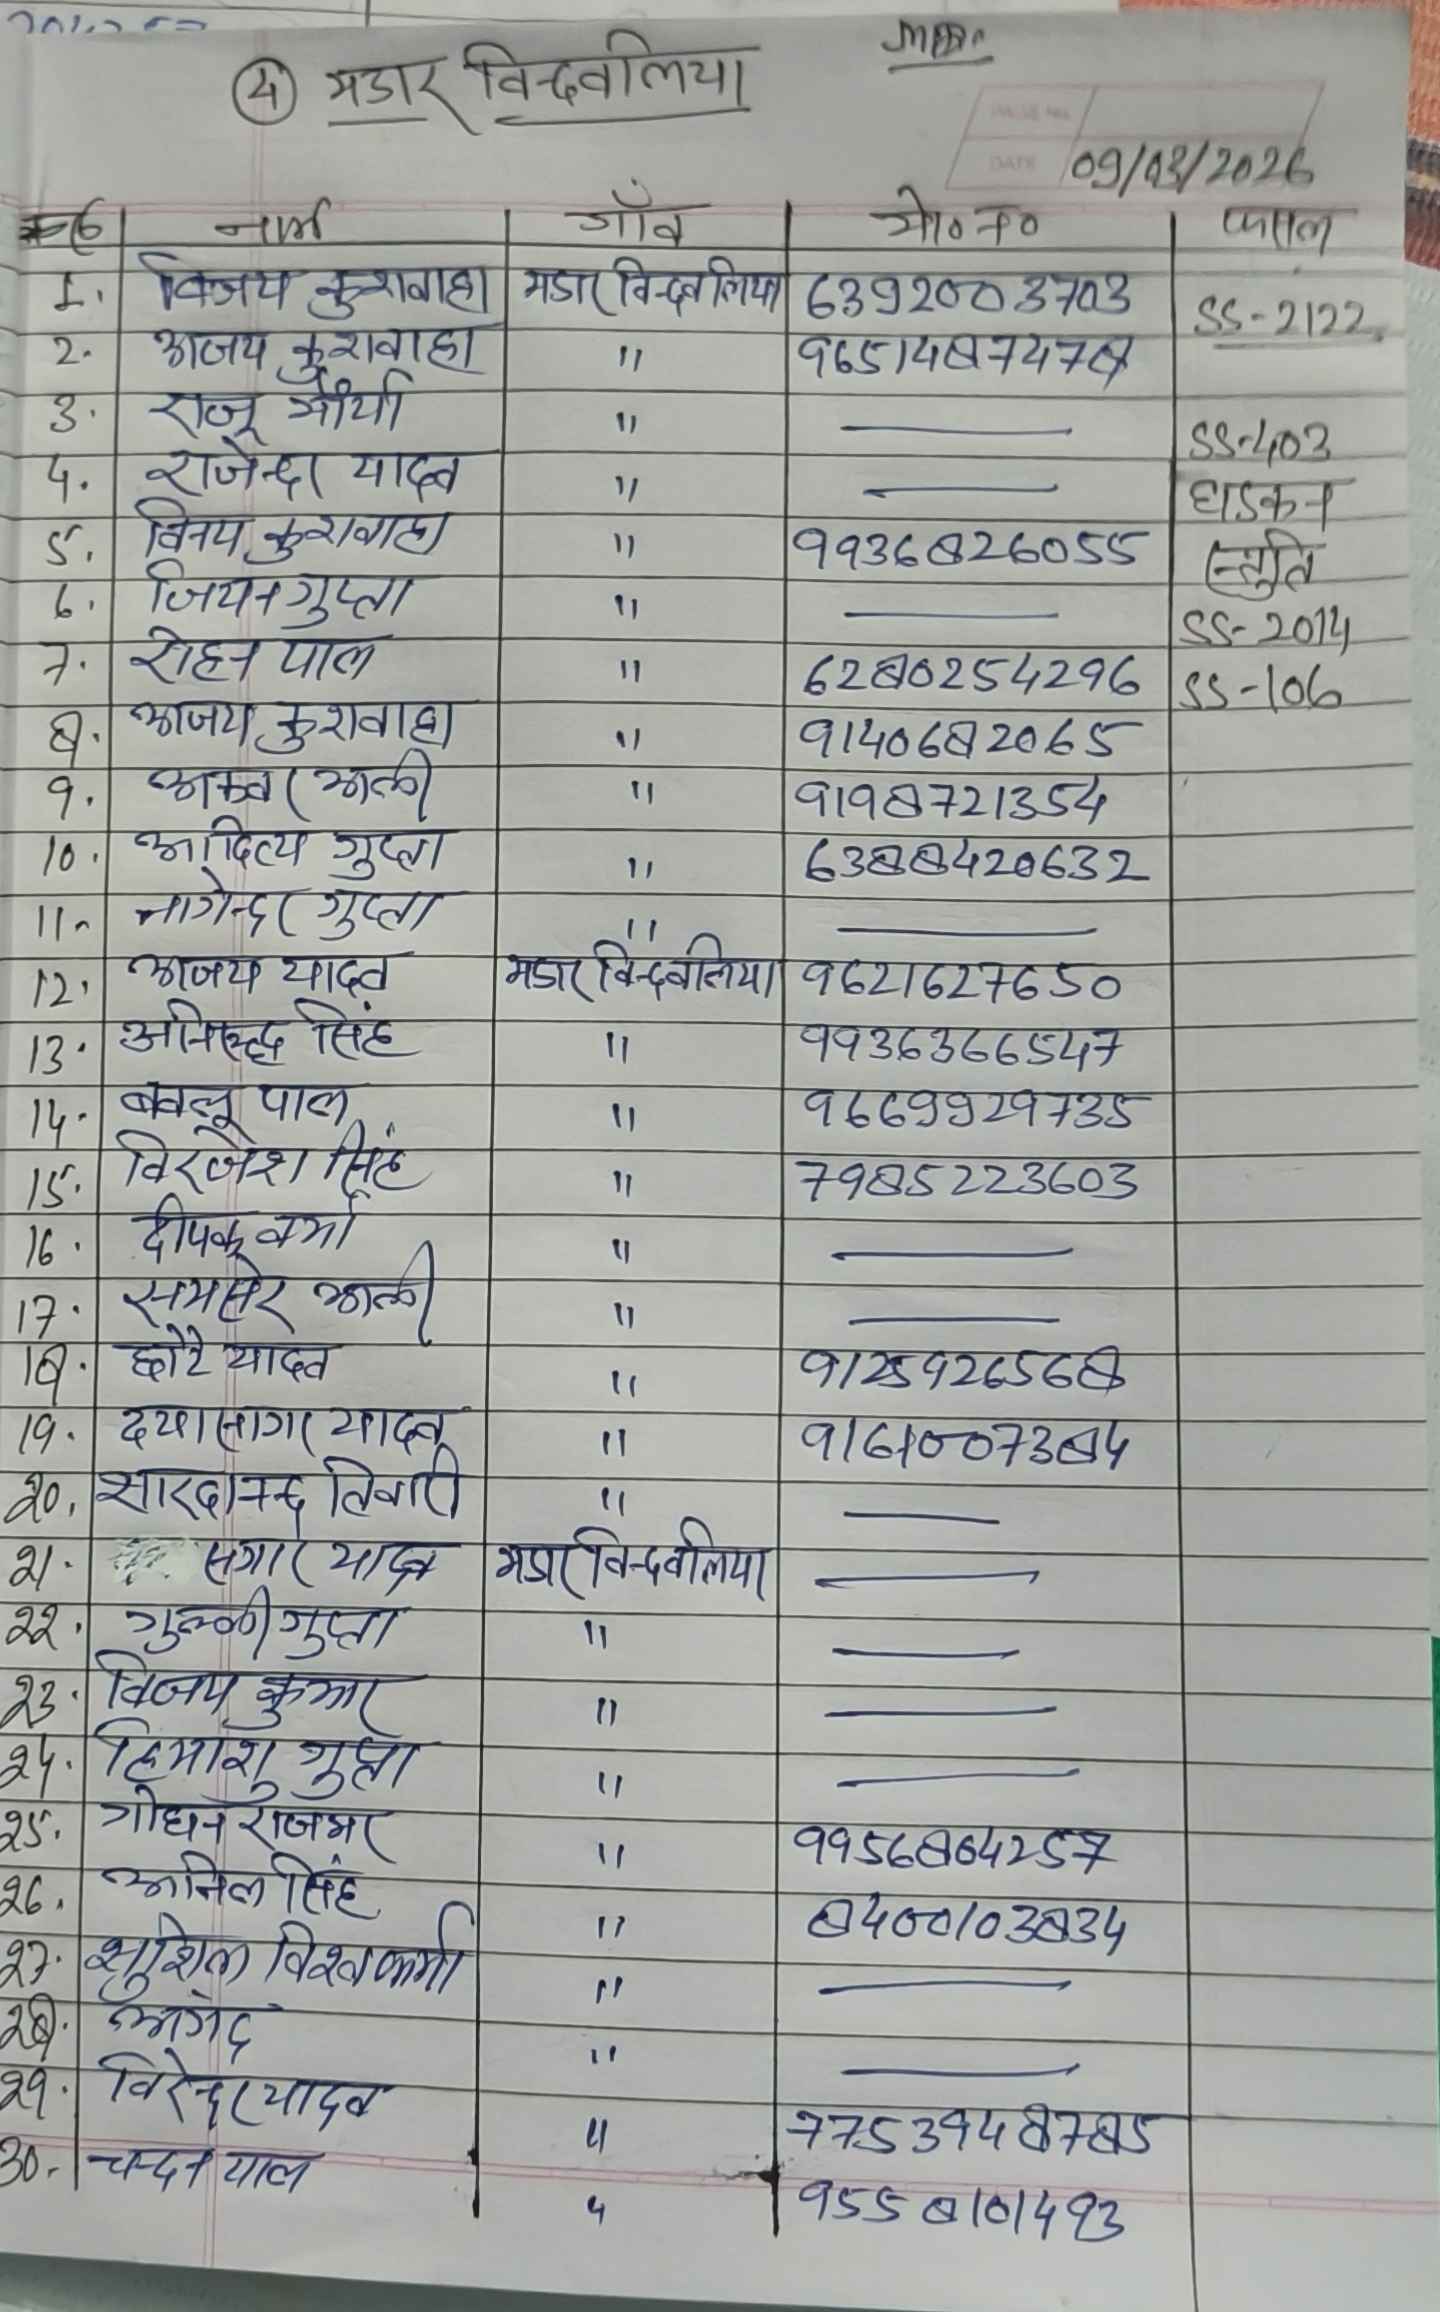 ④ मडार विन्दवलिया
09/03/2026
क्र० नाम गाँव मो० न० फसल
1. विजय कुशवाहा मडार विन्दवलिया 6392003703 SS-2122
2. अजय कुशवाहा " 9651487478
3. राजू मौर्या " — SS-403
4. राजेन्द्र यादव " — धाडकन
5. विनय कुशवाहा " 9936826055 स्तुति
6. जियन गुप्ता " — SS-2014
7. रोहन पाल " 6280254296 SS-106
8. अजय कुशवाहा " 9140682065
9. अकबर अली " 9198721354
10. आदित्य गुप्ता " 6388420632
11. नागेन्द्र गुप्ता " —
12. अजय यादव मडार विन्दवलिया 9621627650
13. अनिरुद्ध सिंह " 9936366547
14. बबलू पाल " 9669929735
15. विरजेश सिंह " 7985223603
16. दीपक वर्मा " —
17. समसेर अली " —
18. छोटे यादव " 9125926568
19. दयासागर यादव " 9161007384
20. सारदानन्द तिवारी " —
21. सागर यादव मडार विन्दवलिया —
22. गुल्ली गुप्ता " —
23. विजय कुमार " —
24. हिमाशु गुप्ता " —
25. गोधन राजभर " 9956864257
26. अनिल सिंह " 8400103834
27. शुशिल विश्वकर्मा " —
28. अंगद " —
29. विरेन्द्र यादव " 7753948785
30. चन्दन पाल " 9558101493